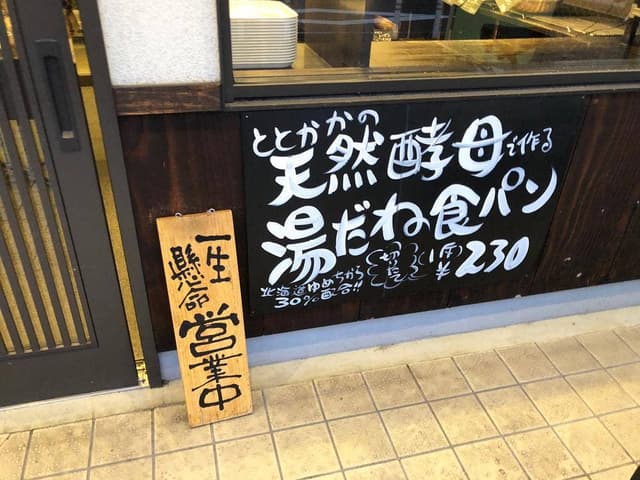 ととかかの
天然酵母で作る
湯だね食パン
北海道ゆめちから
30%配合!!
¥230
一生
懸命
営業中